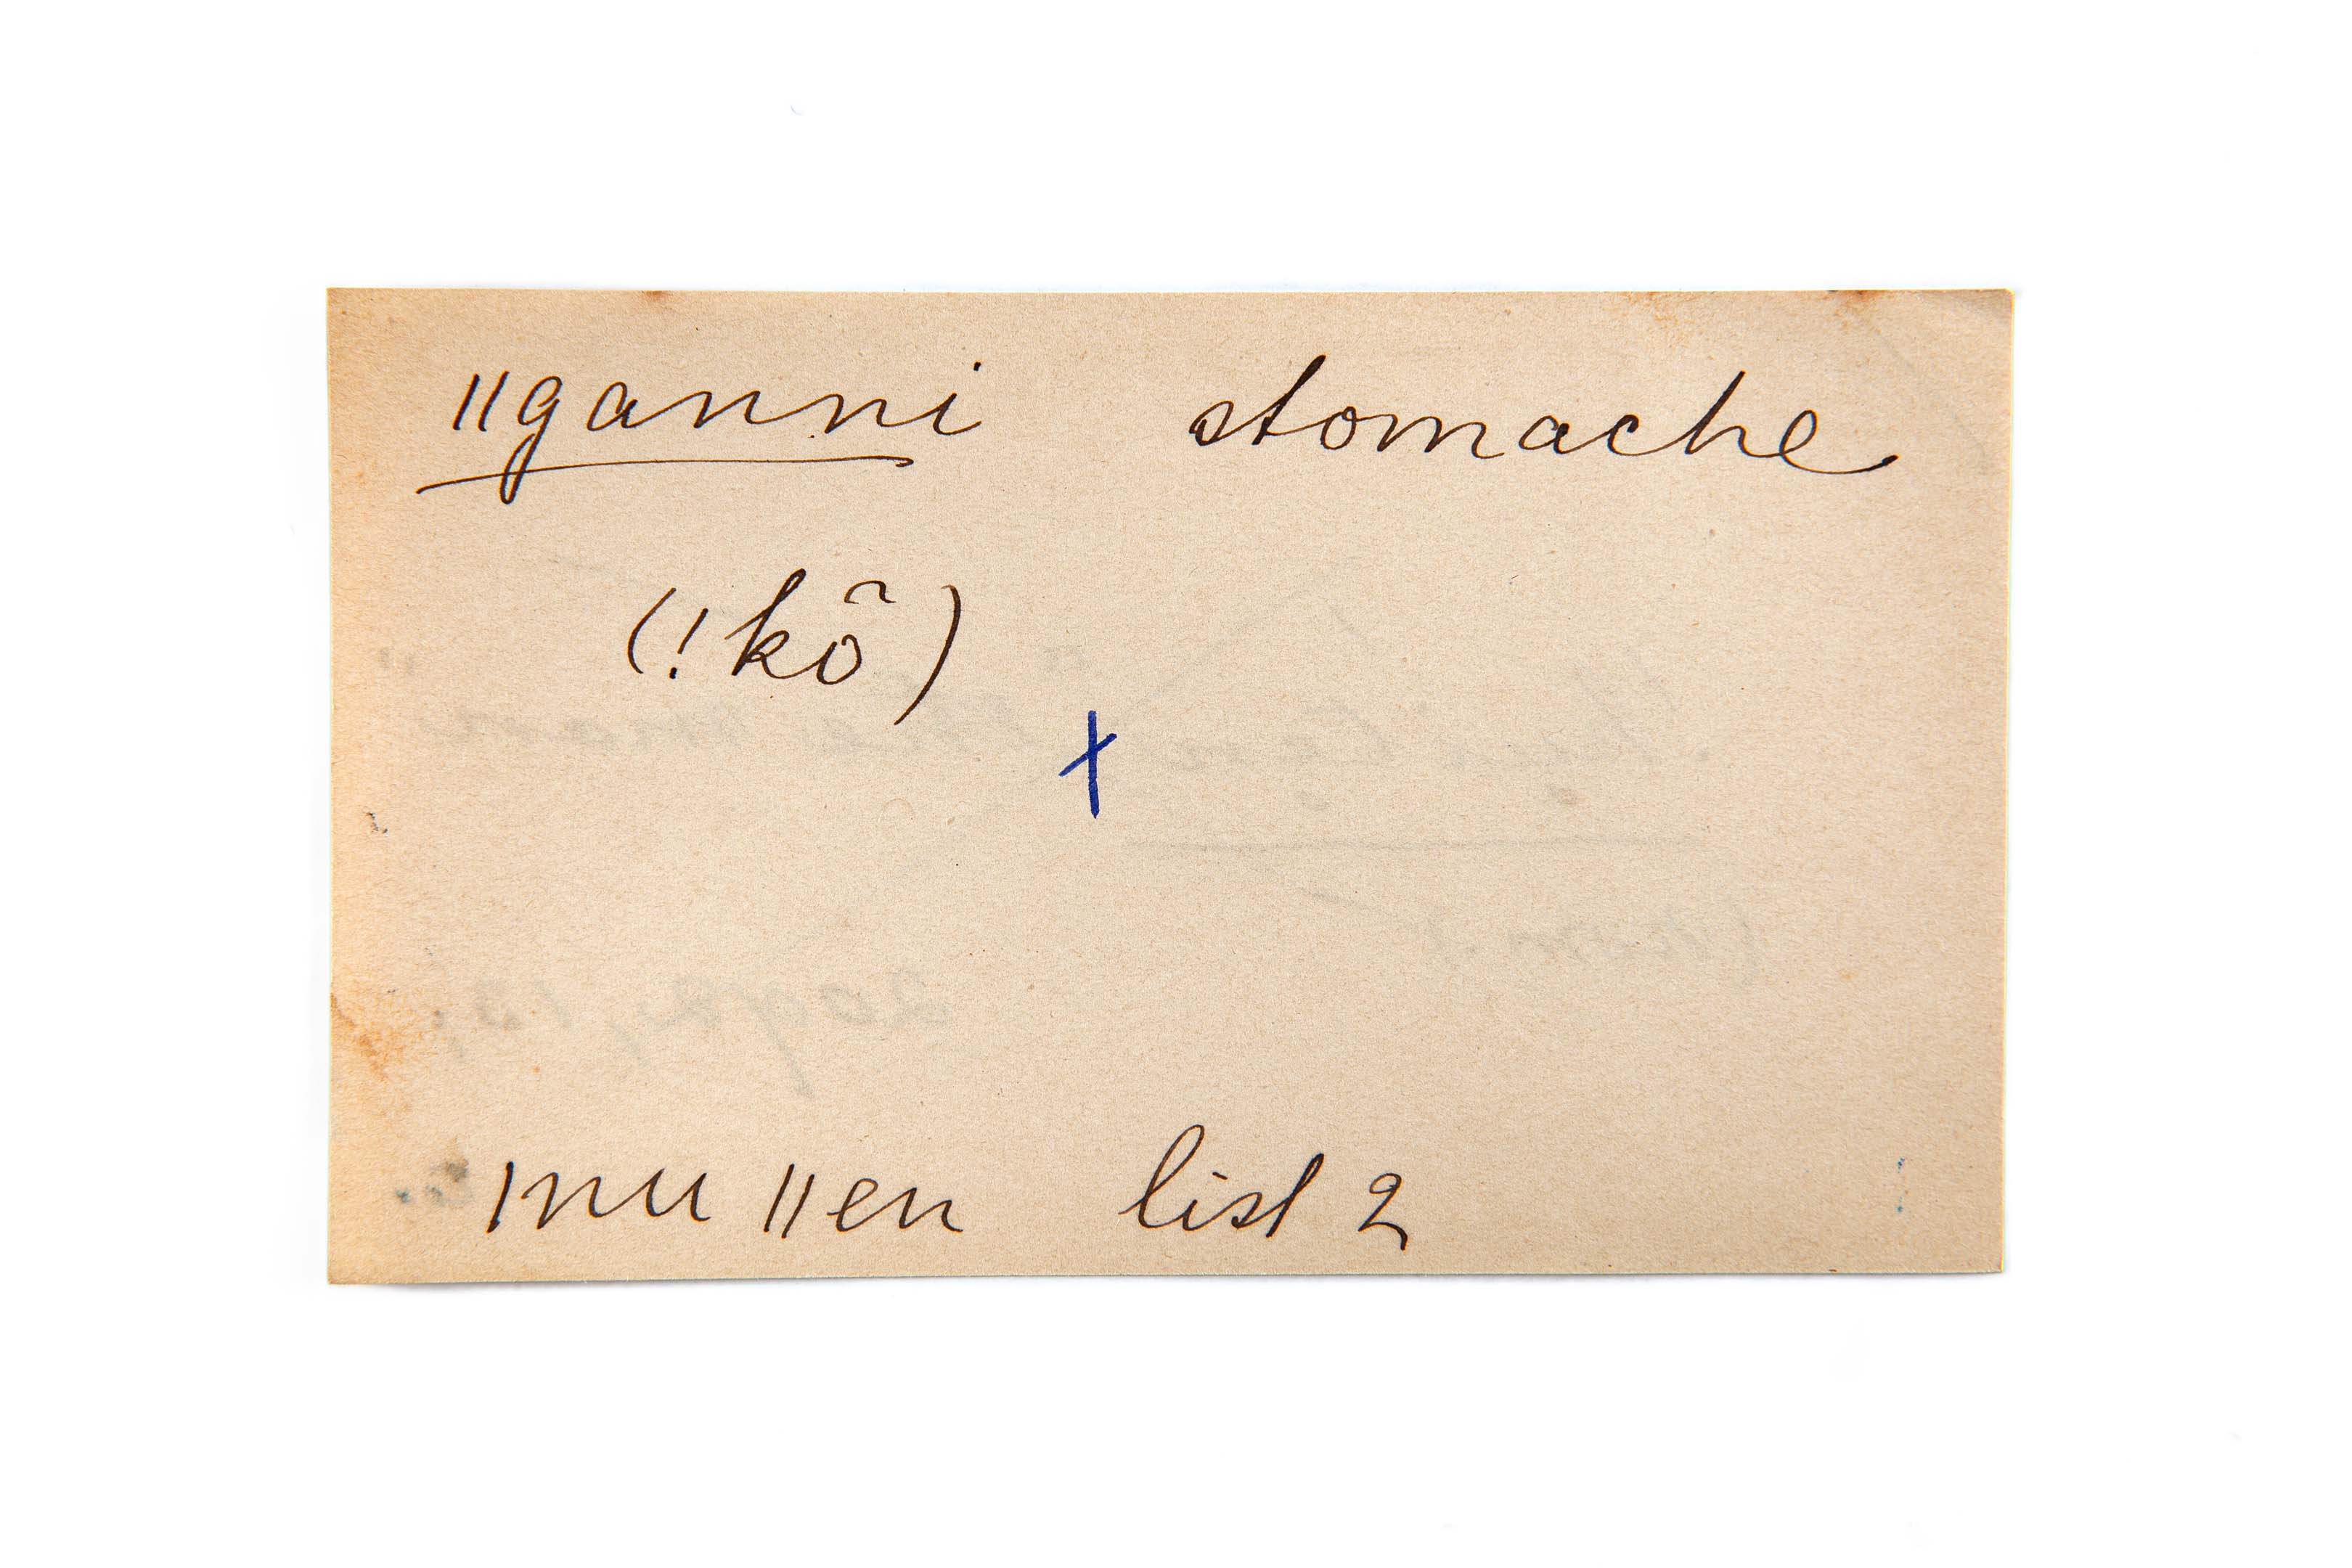 ǁganni stomache
(!kõ)
ǀnu ǁen list 2